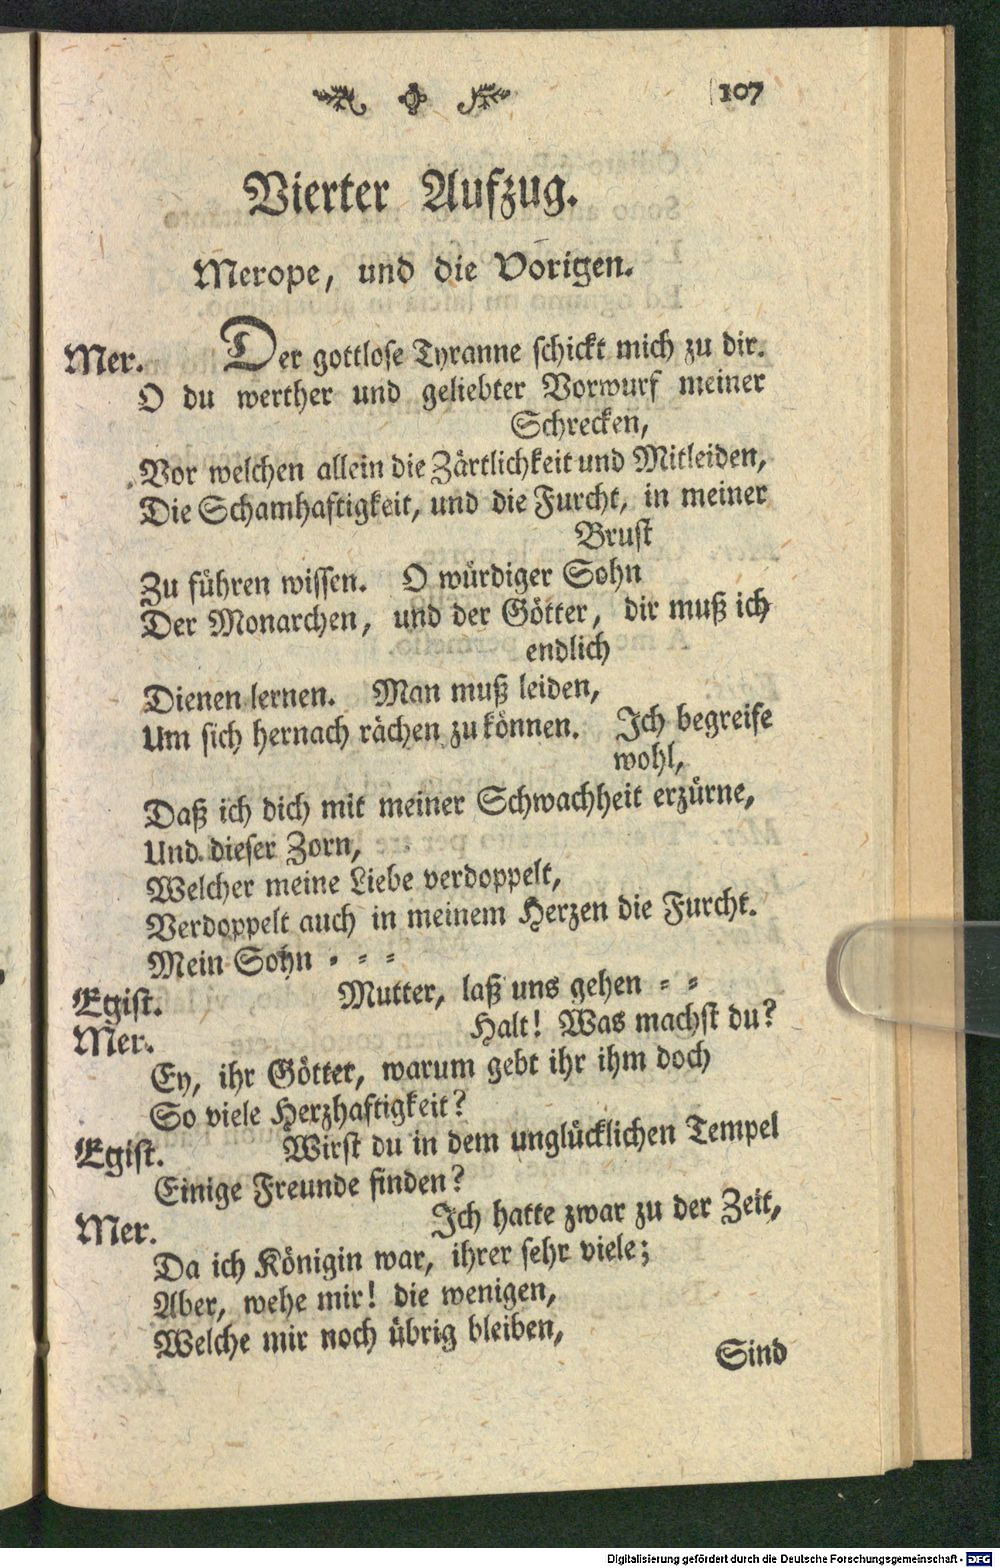 107
Vierter Aufzug.
Merope, und die Vorigen.
Mer. Der gottlose Tyranne schickt mich zu dir.
O du werther und geliebter Vorwurf meiner
Schrecken,
Vor welchen allein die Zärtlichkeit und Mitleiden,
Die Schamhaftigkeit, und die Furcht, in meiner
Brust
Zu führen wissen. O würdiger Sohn
Der Monarchen, und der Götter, dir muß ich
endlich
Dienen lernen. Man muß leiden,
Um sich hernach rächen zu können. Ich begreife
wohl,
Daß ich dich mit meiner Schwachheit erzürne,
Und dieser Zorn,
Welcher meine Liebe verdoppelt,
Verdoppelt auch in meinem Herzen die Furcht.
Mein Sohn - - -
Egist. Mutter, laß uns gehen - -
Mer. Halt! Was machst du?
Ey, ihr Götter, warum gebt ihr ihm doch
So viele Herzhaftigkeit?
Egist. Wirst du in dem unglücklichen Tempel
Einige Freunde finden?
Mer. Ich hatte zwar zu der Zeit,
Da ich Königin war, ihrer sehr viele;
Aber, wehe mir! die wenigen,
Welche mir noch übrig bleiben,
Sind
Digitalisierung gefördert durch die Deutsche Forschungsgemeinschaft - DFG